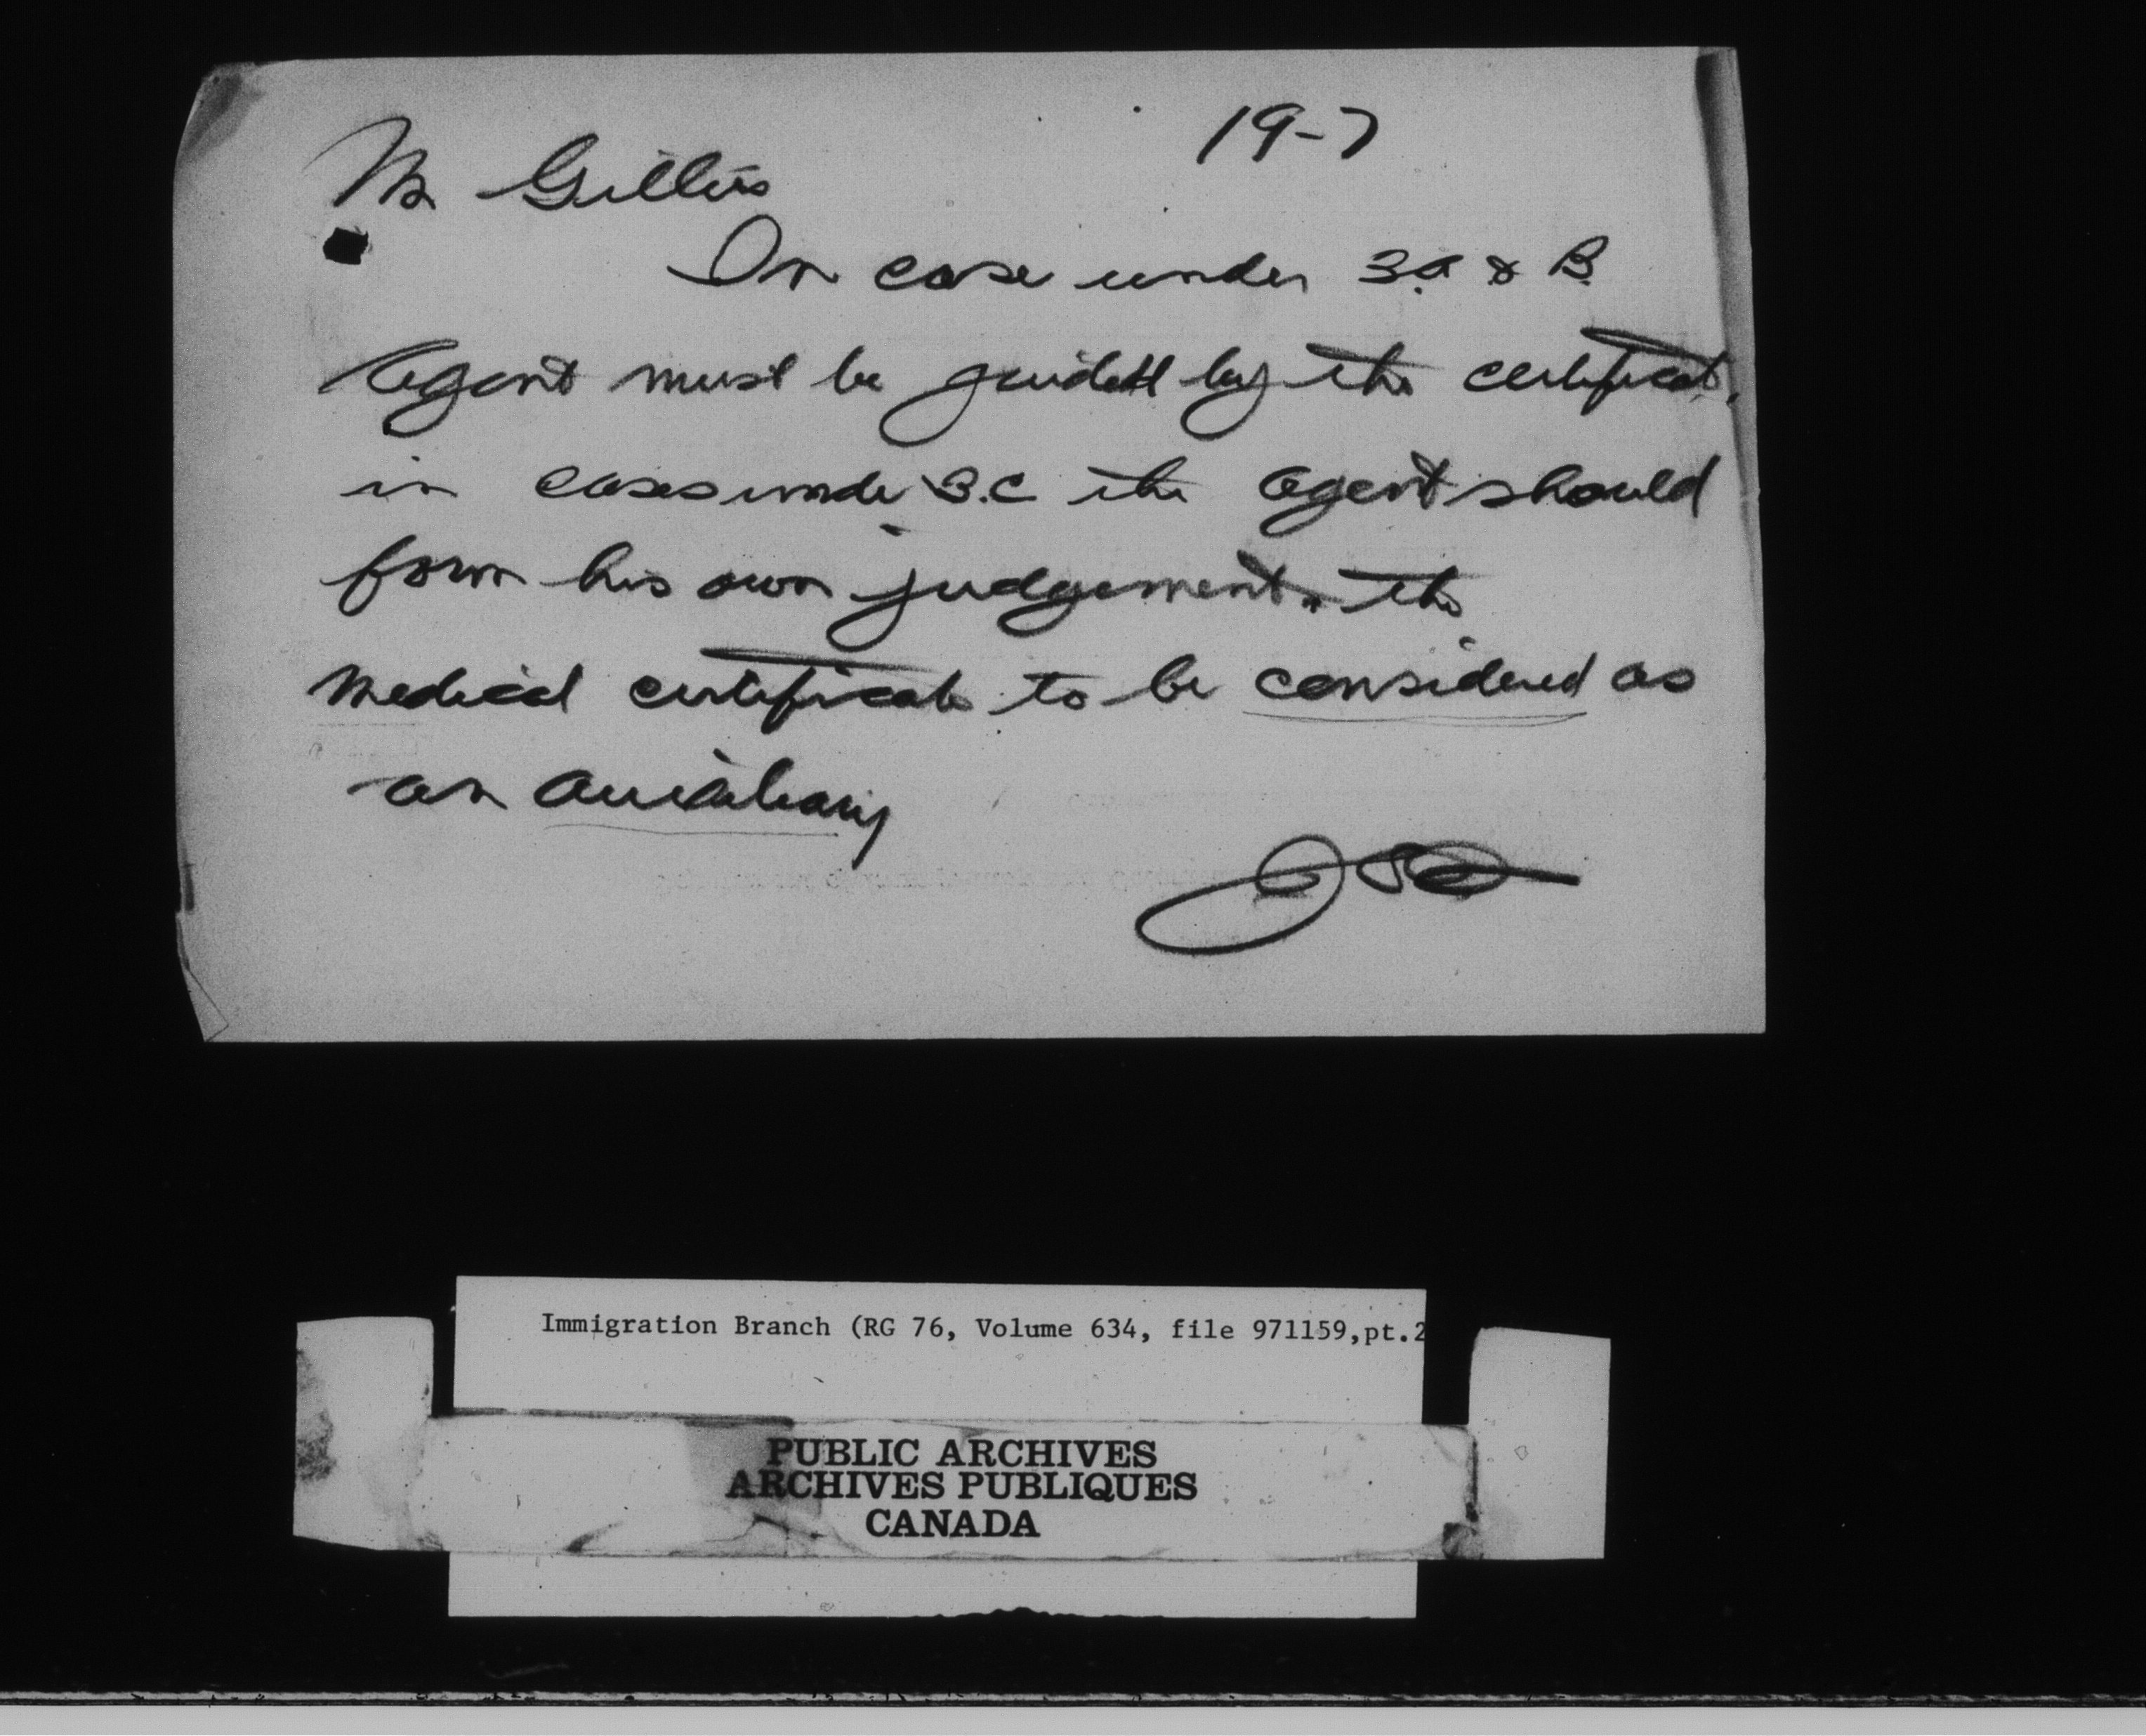 19-7
Mr Gillies
In case under 3.a & B.
Agent must be guided by the certificate,
in cases under 3.C the agent should
form his own judgement & the
medical certificate to be considered as
an auxiliary
Immigration Branch (RG 76, Volume 634, file 971159,pt.2
PUBLIC ARCHIVES
ARCHIVES PUBLIQUES
CANADA